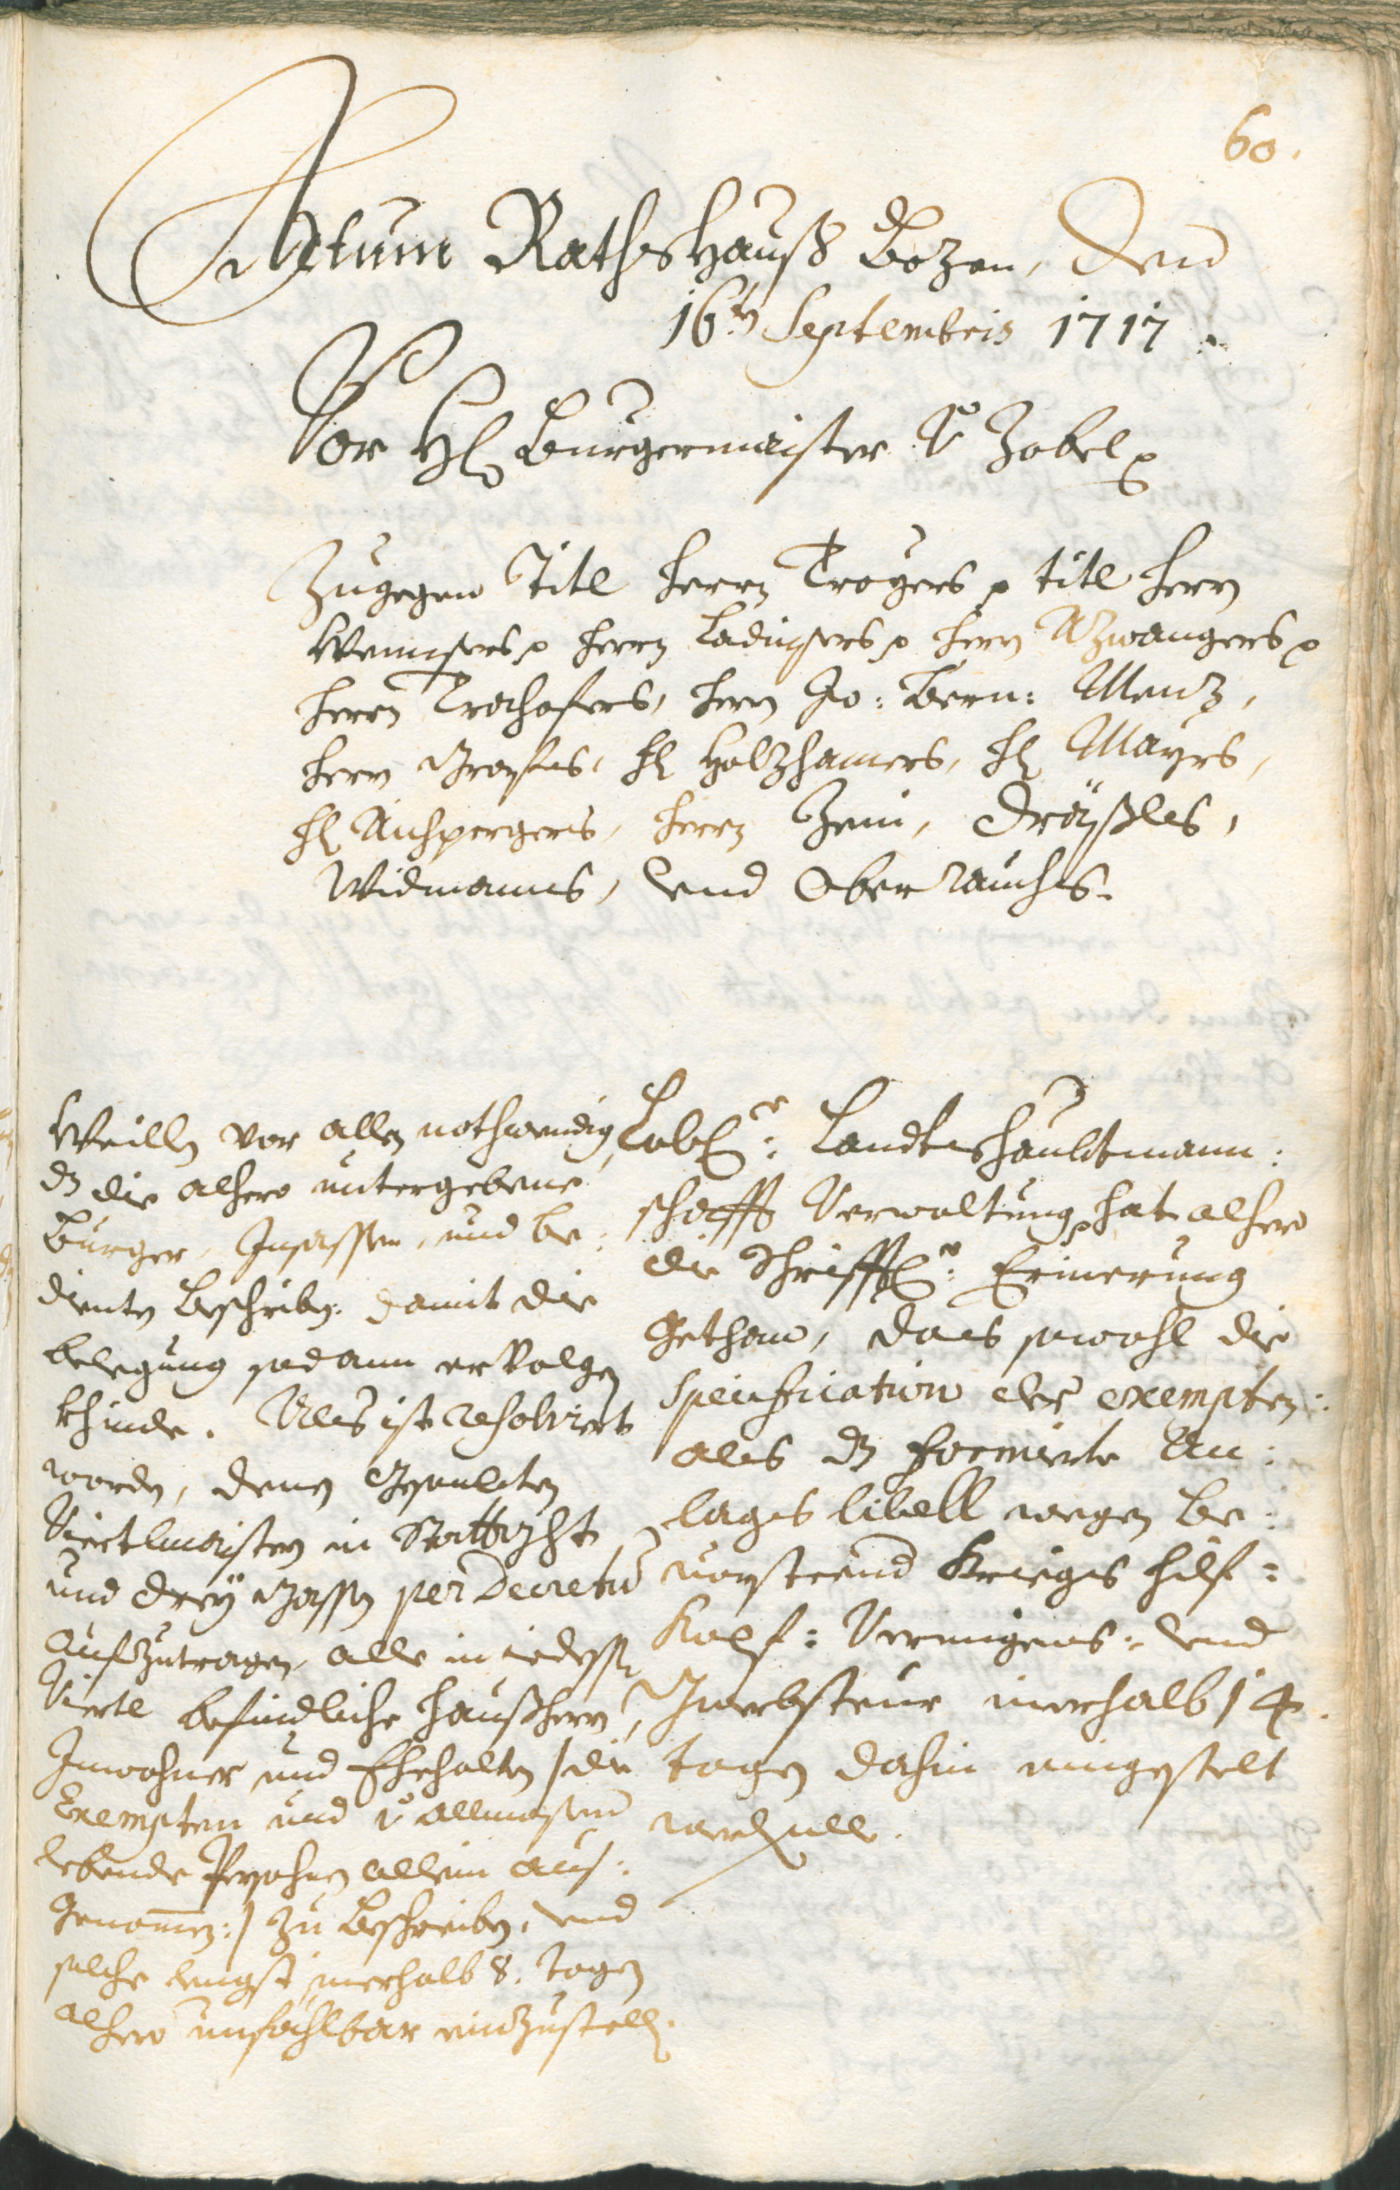 60.
Actum RathsHauß Bozen, den
16.tn Septembris 1717.
Vor H: Burgermaister v: Zobel p
Zugegen Titl Herrn Troyers p titl Herrn
Wenzers p Herrn Ladinsers p Herrn Azwangers p
Herrn Trochofers, Herrn Jo: Bern: Menz,
Herrn Graffes, H: Holzhamers, H: Mayrs,
H: Aichpergers, Herrn Zeni, Dräxßles,
Widmanns, vnd Oberrauchs.
Lobl:r Landtshaubtmann:
schafft Verwaltung p hat alhero
die Schrifftl:e Erinerung
gethan, das sowohl die
Specification der exempten:
als dz formierte An:
lags libell wegen be:
vorsteend Kriegs hilf:
Kopf: Vermigens: vnd
Gwerbsteur inerhalb 14.
tagen dahin eingestelt
werden solle.
Weilln vor allen nothwendig,
dz die alhero untergebene
Burger, Insassen, und be:
diente beschriben: damit die
belegung sodann ervolgen
khinde. Als ist resolviert
worden, denen Gesambten
Viertlmaistern in Stattgricht
und drey Gassen per Decretum
aufzutragen, alle in iedessen
Viertl befindliche Haußherrn,
Inwohner und Ehehalten /:die
Exempten und v: Allmosen
lebende Persohnen allein aus:
genomen:/ zu beschreiben, und
solche lengst inerhalb 8. tagen
alhero unfählbar einzustelln.